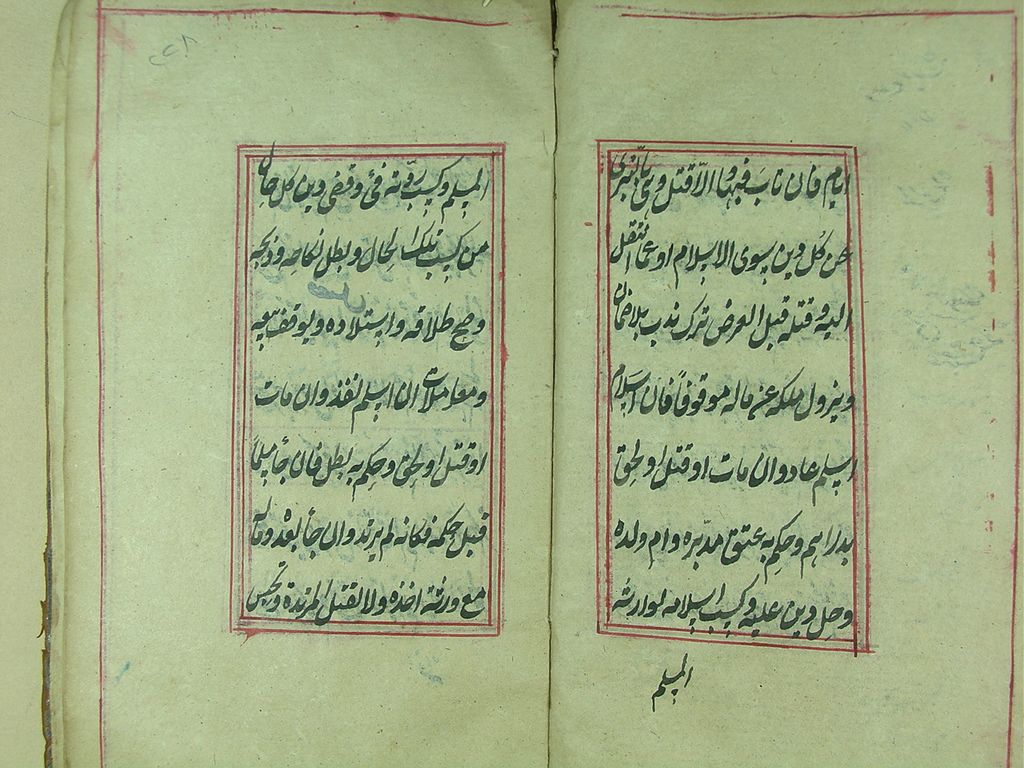 ايام فان تاب فبها والا قتل وهى بالتبرى
عن كل دين سوى الاسلام او عما انتقل
اليه وقتله قبل العرض ترك ندب بلا ضمان
ويزول ملكه عن ماله موقوفاً فان اسلام
اسلم عاد وان مات او قتل او لحق
بدارهم وحكم به عتق مدبره وام ولده
وحل دين عليه وكسب اسلامه لوارثه
المسلم
المسلم وكسب ردّته فئ وقضى دين كل حال
من كسب تلك الحال وبطل نكاحه وذبحه
وصح طلاقه واستيلاده ويوقف بيعه
ومعاملاته ان اسلم نفذ وان مات
او قتل او لحق وحكم به بطل فان جأ مسلماً
قبل حكمه فكانه لم يرتد وان جأ بعده وماله
مع ورثته اخذه ولا تقتل المرتدة وتحبس
٢٢٨